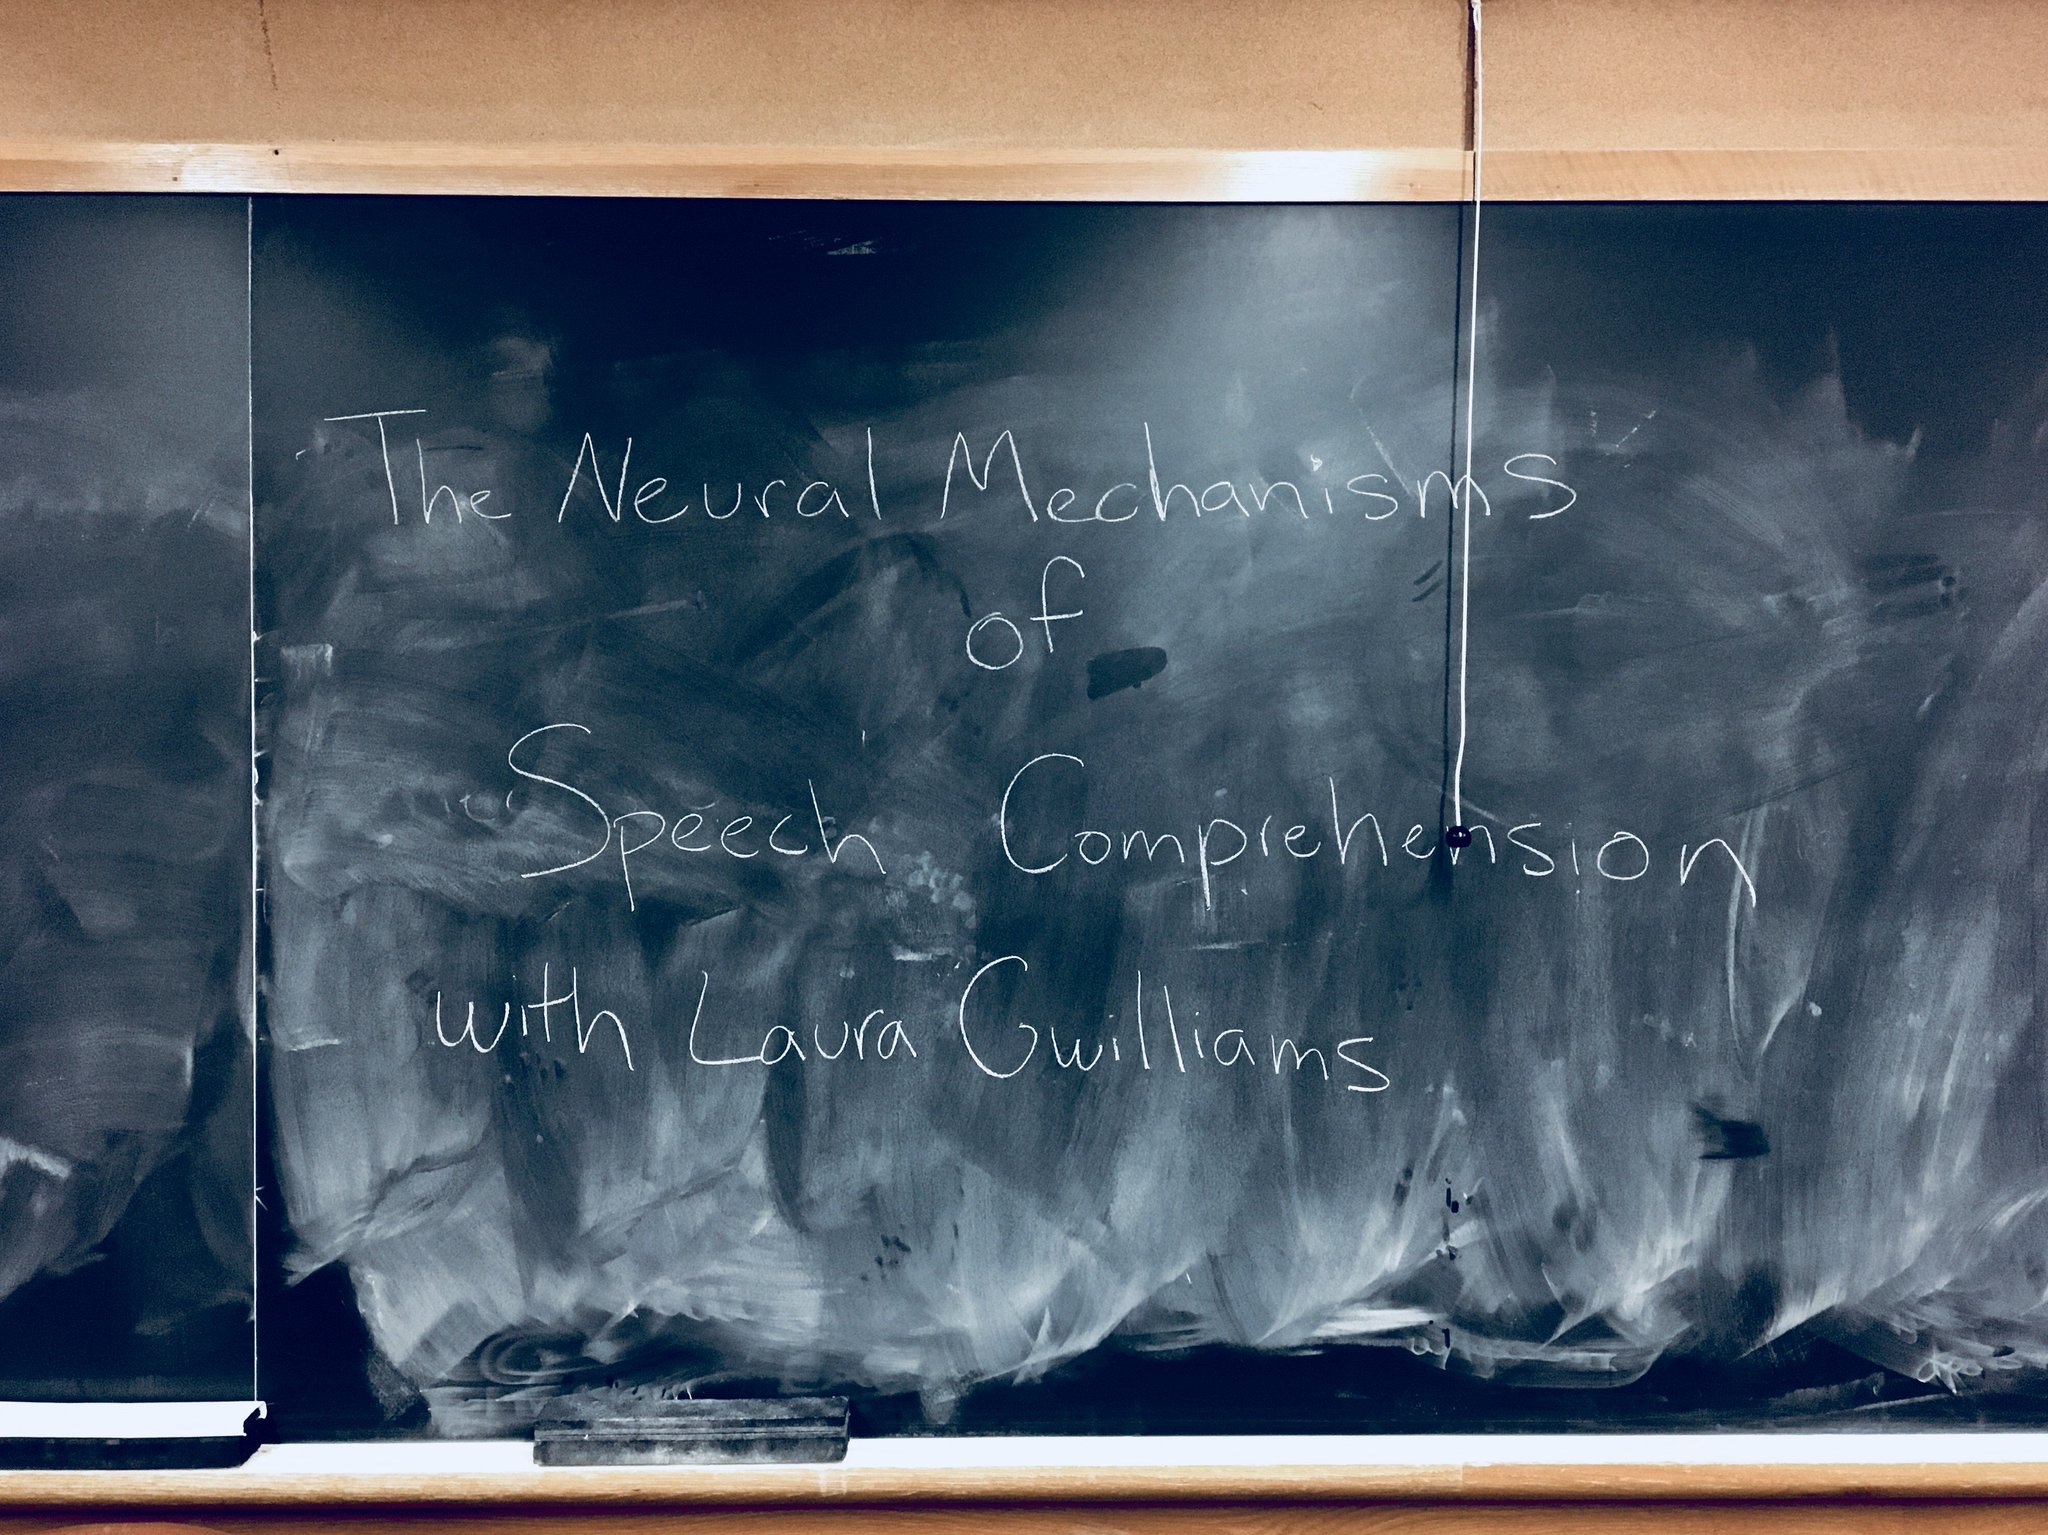 The Neural Mechanisms
of
Speech Comprehension
with Laura Gwilliams